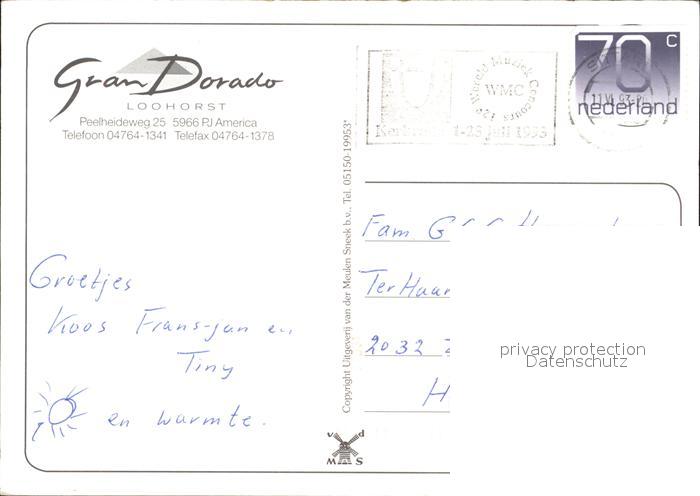 Gran Dorado
LOOHORST
Peelheideweg 25 5966 PJ America
Telefoon 04764-1341 Telefax 04764-1378
WMC
Wereld Muziek Concours
1-23 juli 1993
70 c
nederland
Copyright Uitgeverij van der Meulen Sneek b.v., Tel. 05150-19953*
Groetjes
Koos Frans-jan en
Tiny
en warmte.
Fam G
Ter Haar
2032
H
privacy protection
Datenschutz
v d
M S